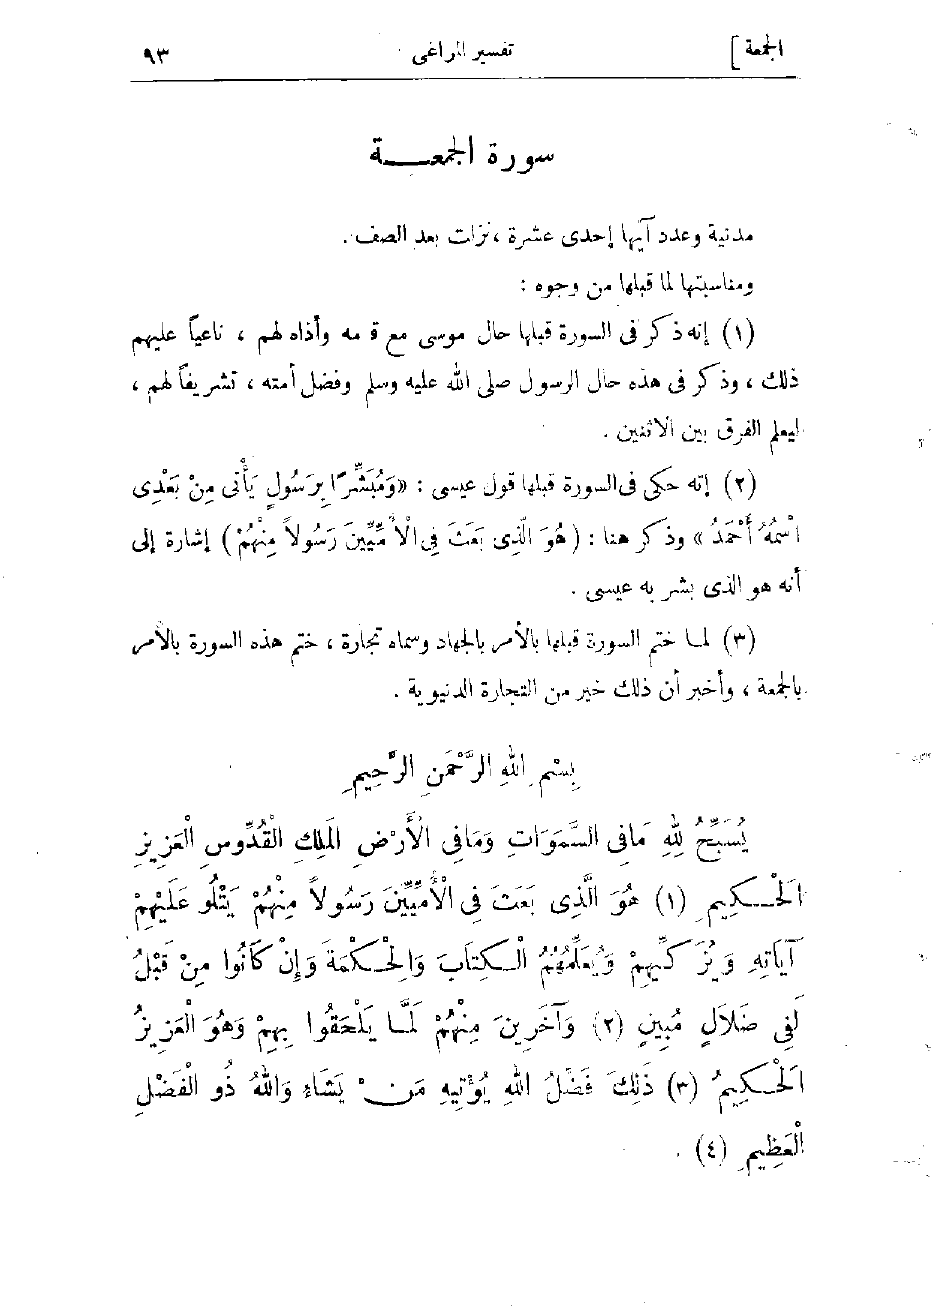 الجمعة] تفسير المراغى ٩٣
سورة الجمعـــة
مدنية وعدد آيها إحدى عشرة ، نزلت بعد الصف .
ومناسبتها لما قبلها من وجوه :
(١) إنه ذكر فى السورة قبلها حال موسى مع قومه وأذاه لهم ، ناعياً عليهم
ذلك ، وذكر فى هذه حال الرسول صلى الله عليه وسلم وفضل أمته ، تشريفاً لهم ،
ليعلم الفرق بين الاثنين .
(٢) إنه حكى فى السورة قبلها قول عيسى : «وَمُبَشِّرًا بِرَسُولٍ يَأْتِى مِنْ بَعْدِى
اسْمُهُ أَحْمَدُ» وذكر هنا : (هُوَ الَّذِى بَعَثَ فِى الْأُمِّيِّينَ رَسُولاً مِنْهُمْ) إشارة إلى
أنه هو الذى بشر به عيسى .
(٣) لما ختم السورة قبلها بالأمر بالجهاد وسماه تجارة ، ختم هذه السورة بالأمر
بالجمعة ، وأخبر أن ذلك خير من التجارة الدنيوية .
بِسْمِ اللهِ الرَّحْمَنِ الرَّحِيمِ
يُسَبِّحُ لِلهِ مَا فِى السَّمَوَاتِ وَمَا فِى الْأَرْضِ الْمَلِكِ الْقُدُّوسِ الْعَزِيزِ
الْحَكِيمِ (١) هُوَ الَّذِى بَعَثَ فِى الْأُمِّيِّينَ رَسُولاً مِنْهُمْ يَتْلُو عَلَيْهِمْ
آيَاتِهِ وَيُزَكِّيهِمْ وَيُعَلِّمُهُمُ الْكِتَابَ وَالْحِكْمَةَ وَإِنْ كَانُوا مِنْ قَبْلُ
لَفِى ضَلَالٍ مُبِينٍ (٢) وَآخَرِينَ مِنْهُمْ لَمَّا يَلْحَقُوا بِهِمْ وَهُوَ الْعَزِيزُ
الْحَكِيمُ (٣) ذَلِكَ فَضْلُ اللهِ يُؤْتِيهِ مَنْ يَشَاءُ وَاللهُ ذُو الْفَضْلِ
الْعَظِيمِ (٤) .